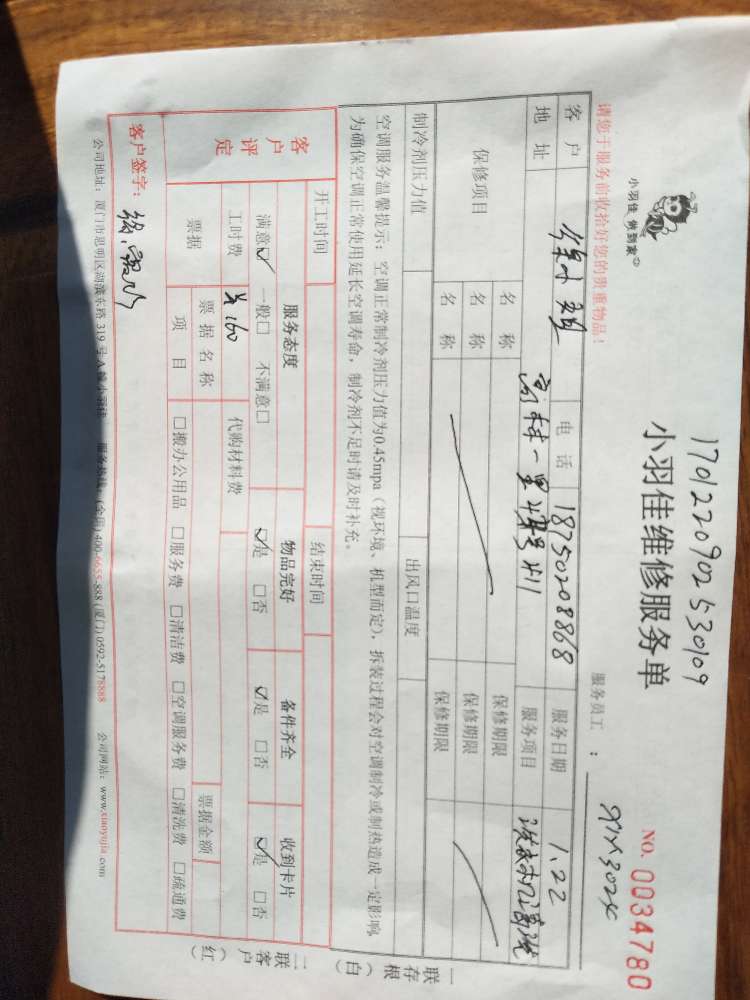 1701220902530109
小羽佳 做到家
小羽佳维修服务单
NO. 0034780
请您于服务前收拾好您的贵重物品！
服务员工：
客户 电话 18750208868 服务日期 1.22
地址 服务项目
保修项目 名称 保修期限
名称 保修期限
名称 保修期限
制冷剂压力值 出风口温度
空调服务温馨提示：空调正常制冷剂压力值为0.45mpa（视环境、机型而定），拆装过程会对空调制冷或制热造成一定影响，
为确保空调正常使用延长空调寿命，制冷剂不足时请及时补充。
开工时间 结束时间
客户评定 服务态度 物品完好 备件齐全 收到卡片
满意☑ 一般□ 不满意□ ☑是 □否 ☑是 □否 ☑是 □否
工时费 ¥160 代购材料费
票据 票据名称 票据金额
项目 □搬办公用品 □服务费 □清洁费 □空调服务费 □清洗费 □疏通费
客户签字：
公司地址：厦门市思明区湖滨东路 319 号 A 幢小羽佳 服务热线：(全国)400-6655-888 (厦门) 0592-5178888 公司网站：www.xiaoyujia.com
一联存根（白）
二联客户（红）